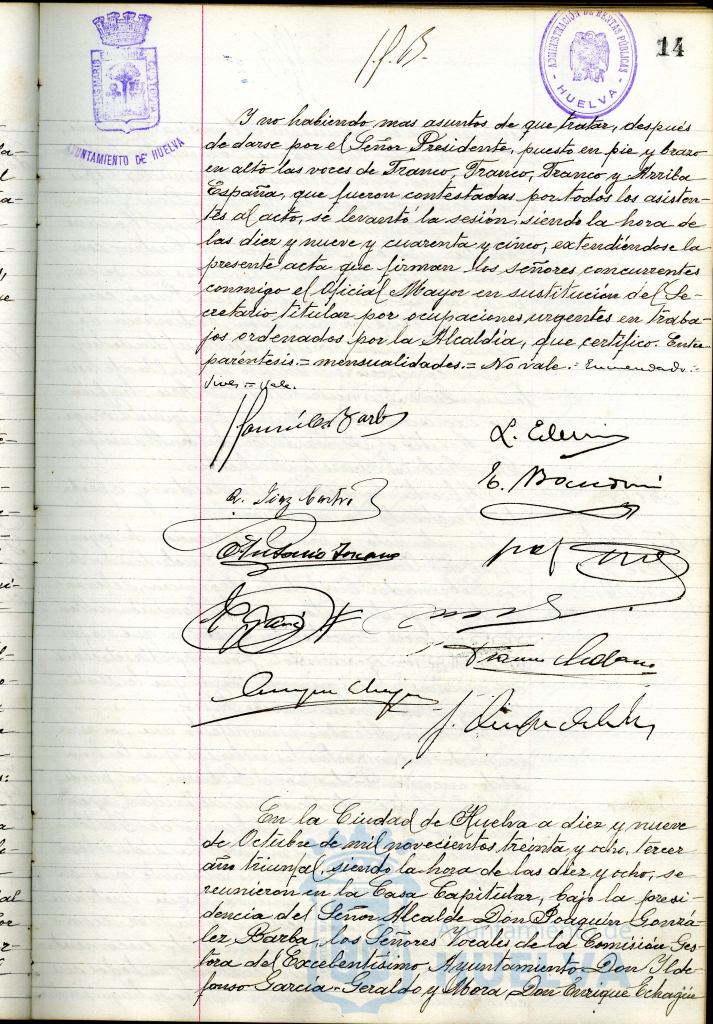 ADMINISTRACIÓN DE RENTAS PÚBLICAS
- HUELVA -
14
PORTUS MARIS
CUSTODIA
AYUNTAMIENTO DE HUELVA
Y no habiendo mas asuntos de que tratar, después
de darse por el Señor Presidente, puesto en pie y brazo
en alto las voces de Franco, Franco, Franco y Arriba
España, que fueron contestadas por todos los asisten-
tes al acto, se levantó la sesión, siendo la hora de
las diez y nueve y cuarenta y cinco, extendiéndose la
presente acta que firman los señores concurrentes
conmigo el Oficial Mayor en sustitución del Se-
cretario titular por ocupaciones urgentes en traba-
jos ordenados por la Alcaldía, que certifico. Entre
paréntesis.= mensualidades.= No vale.= Enmendado.=
= vale.
González Barba
E.
A. Díaz
Antonio
Enrique
J.
En la Ciudad de Huelva a diez y nueve
de Octubre de mil novecientos treinta y ocho, tercer
año triunfal, siendo la hora de las diez y ocho, se
reunieron en la Casa Capitular, bajo la presi-
dencia del Señor Alcalde Don Joaquín Gonzá-
lez Barba, los Señores Vocales de la Comisión Ges-
tora del Excelentísimo Ayuntamiento Don Ilde-
fonso García-Geraldo y Mora Don Enrique Echagüe
Ayuntamiento de
HUELVA